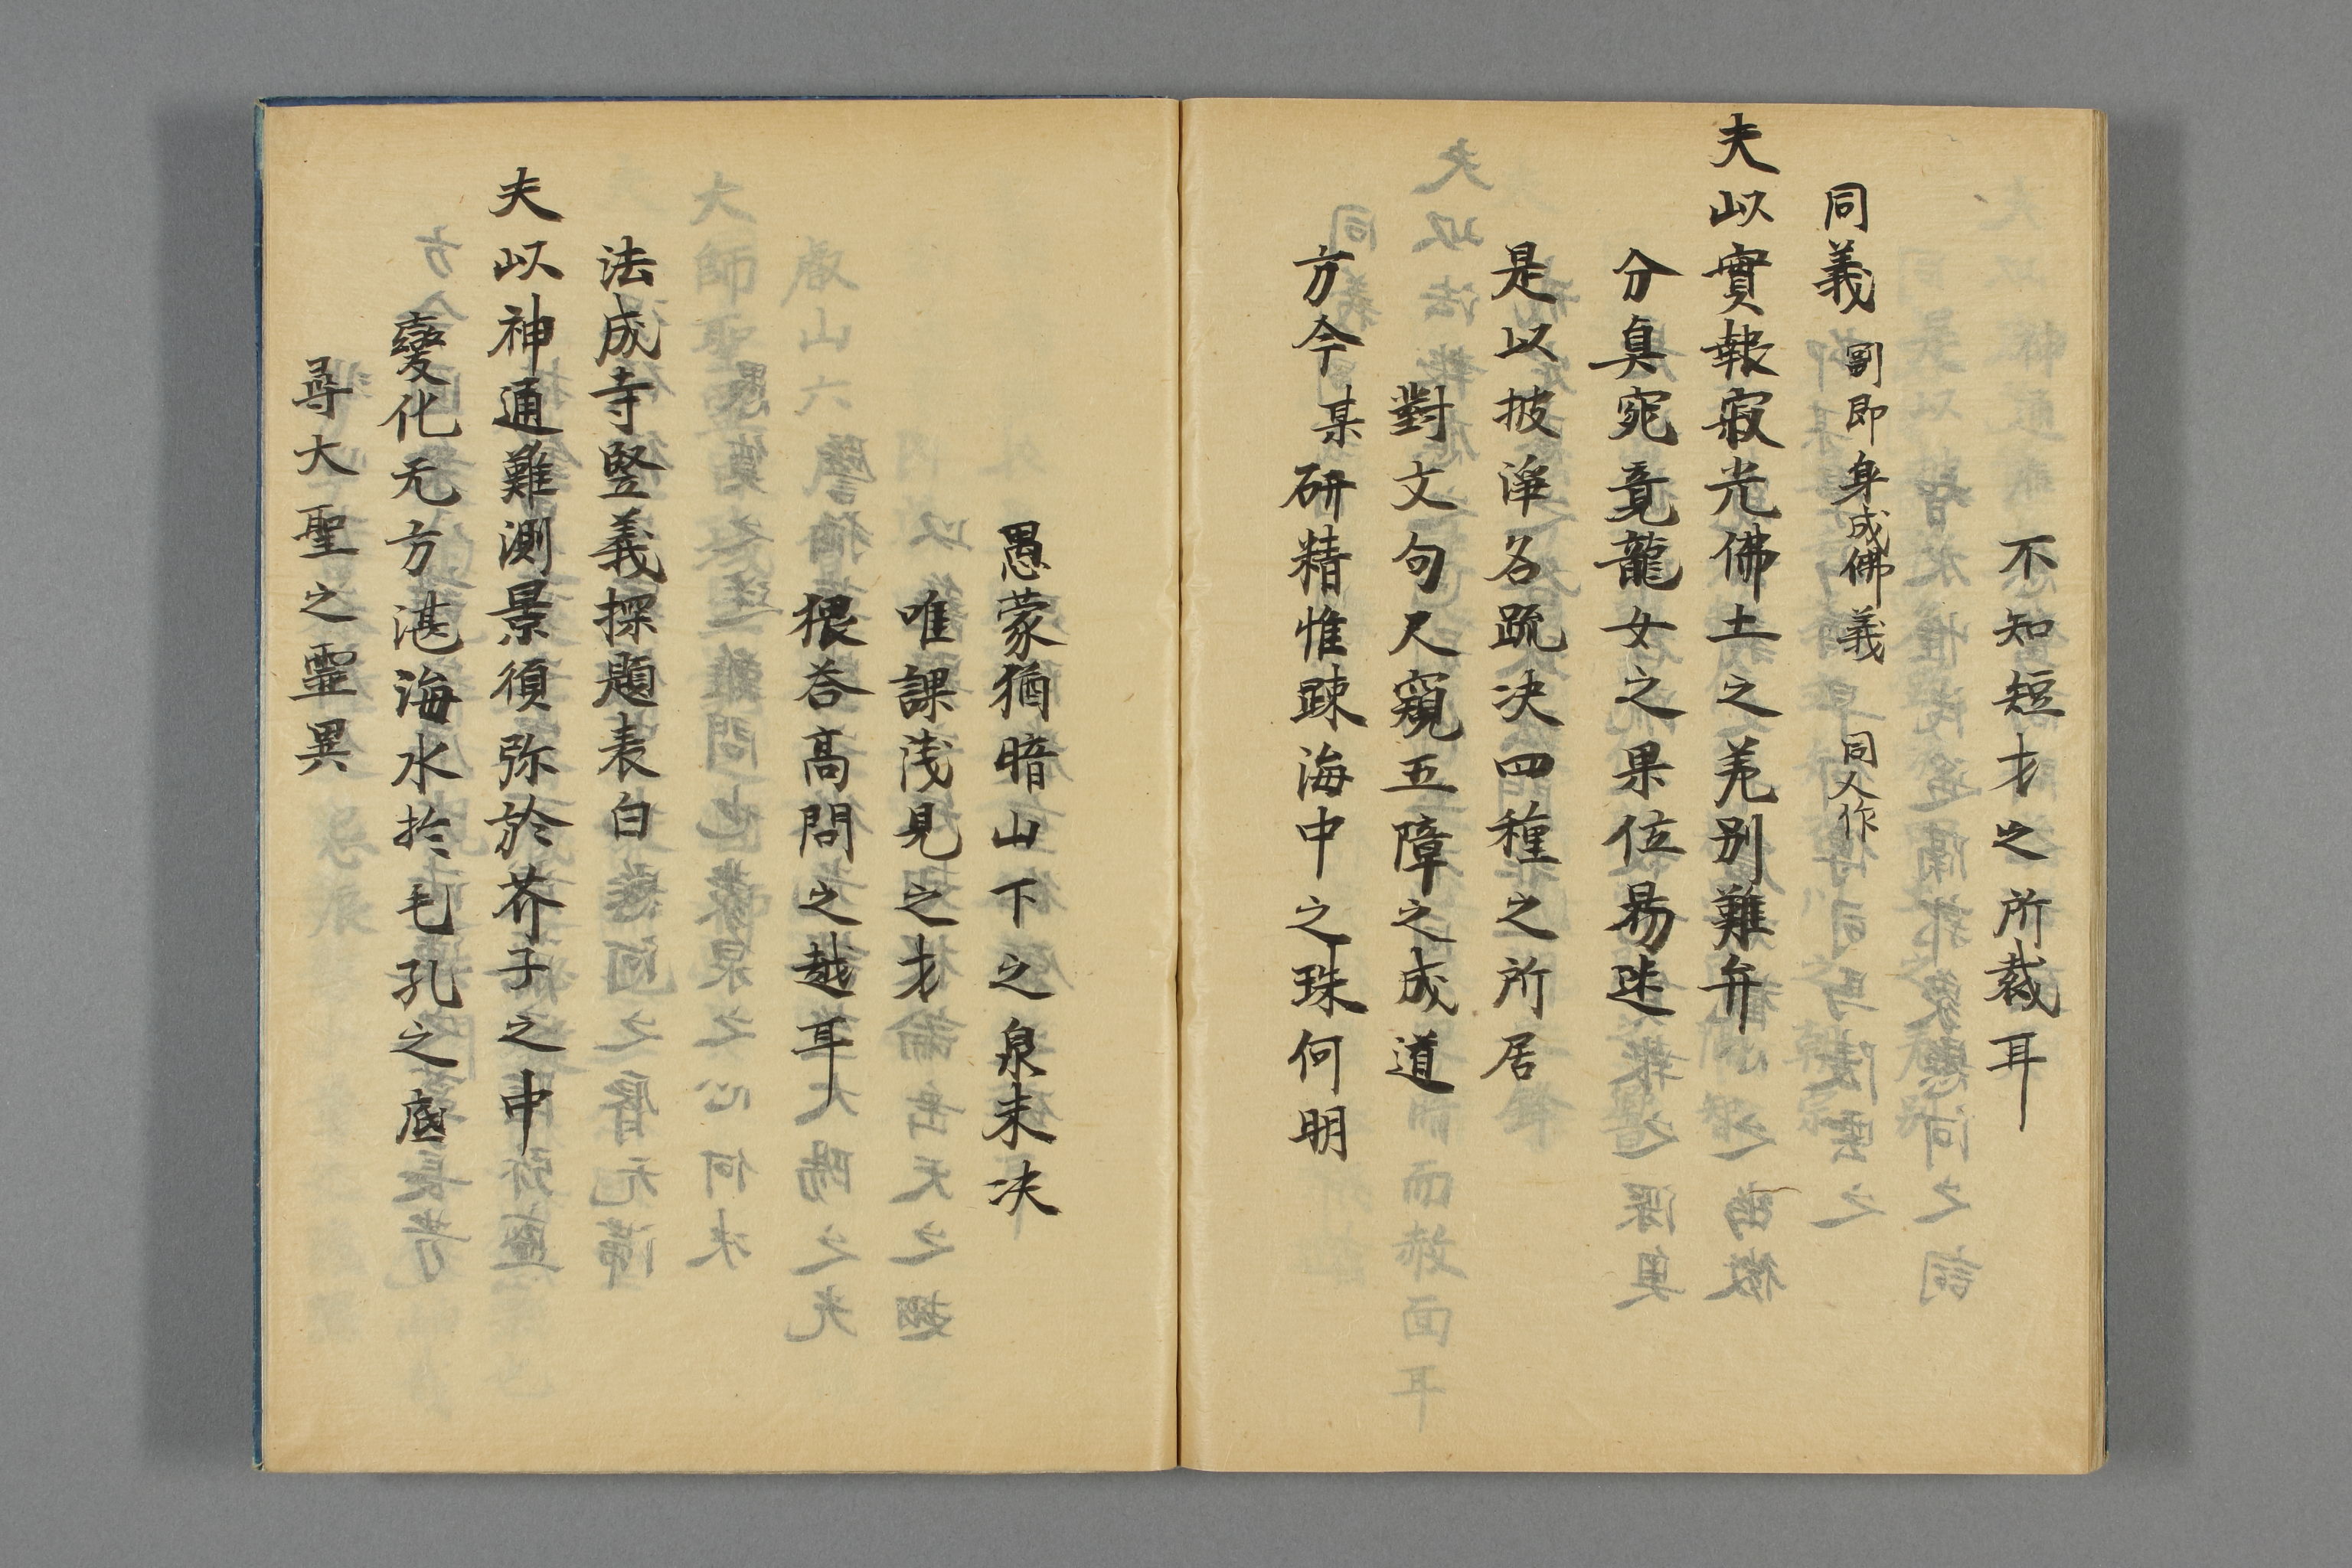 不知短才之所裁耳
同義 劉即身成佛義 同人作
夫以實報寂光佛土之差別難弁
分真究竟龍女之果位易迷
是以披淨名䟽决四種之所居
對文句尺窺五障之成道
方今某研精惟疎海中之珠何明
愚蒙猶暗山下之泉未决
唯課浅見之才
猥荅高問之越耳
法成寺竪義探題表白
夫以神通難測景須弥於芥子之中
變化无方湛海水扵毛孔之底
尋大聖之霊異